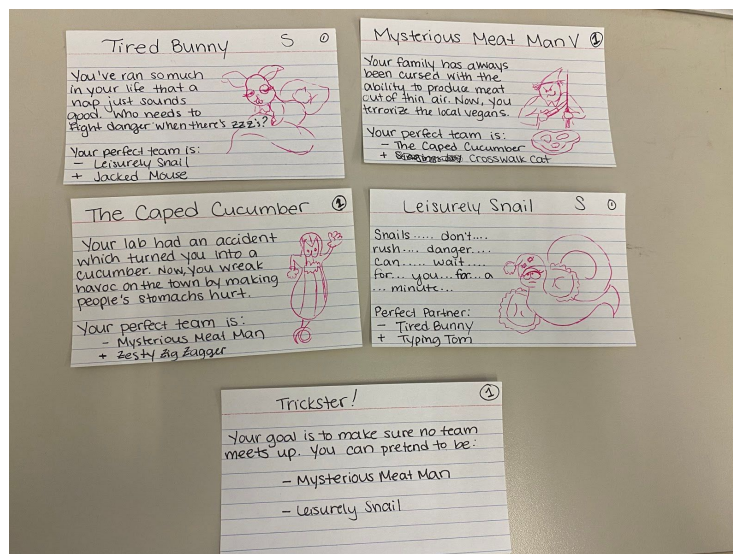 Tired Bunny S 1
You've ran so much
in your life that a
nap just sounds
good. Who needs to
fight danger when there's zzz's?
Your perfect team is:
- Leisurely Snail
+ Jacked Mouse
Mysterious Meat Man V 1
Your family has always
been cursed with the
ability to produce meat
out of thin air. Now, you
terrorize the local vegans.
Your perfect team is:
- The Caped Cucumber
+ Crosswalk Cat
The Caped Cucumber 1
Your lab had an accident
which turned you into a
cucumber. Now, you wreak
havoc on the town by making
people's stomachs hurt.
Your perfect team is:
- Mysterious Meat Man
+ Zesty Zig Zagger
Leisurely Snail S 1
Snails ..... don't....
rush.... danger....
Can ..... wait.....
for... you...for...a
...minute...
Perfect Partner:
- Tired Bunny
+ Typing Tom
Trickster! 1
Your goal is to make sure no team
meets up. You can pretend to be:
- Mysterious Meat Man
- Leisurely Snail